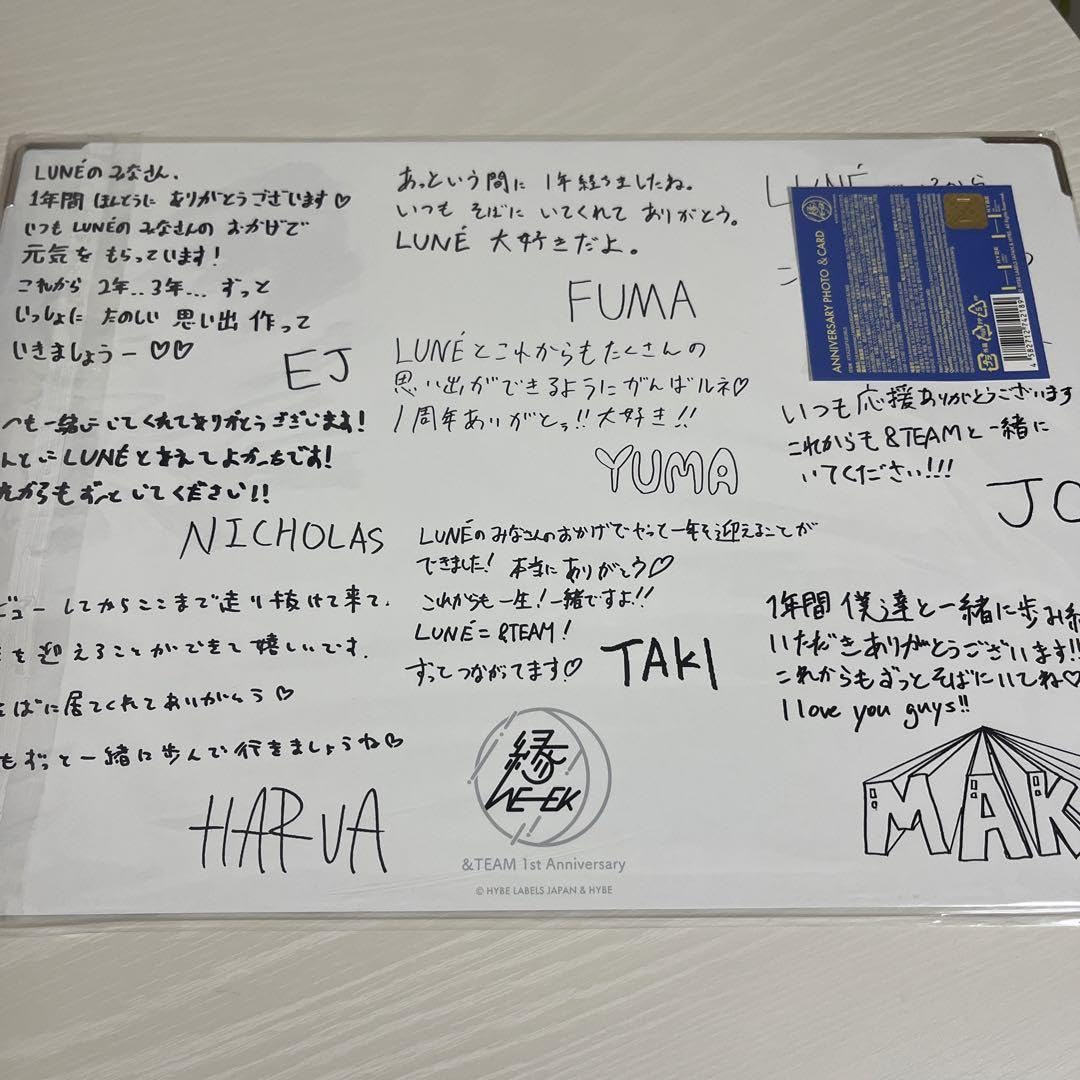 LUNÉのみなさん、
1年間 ほんとうに ありがとうございます♡
いつも LUNÉのみなさんの おかげで
元気を もらっています!
これから 2年..3年... ずっと
いっしょに たのしい 思い出 作って
いきましょうー♡♡
EJ
あっという間に 1年経ちましたね。
いつも そばに いてくれて ありがとう。
LUNÉ 大好きだよ。
FUMA
LUNÉ
ANNIVERSARY PHOTO & CARD
4 582712 742189
つも一緒にいてくれてありがとうございます!
んとにLUNÉと会えてよかったです!
れからもずっといてください!!
NICHOLAS
LUNÉとこれからもたくさんの
思い出ができるようにがんばルネ♡
1周年ありがとぅ!! 大好き!!
YUMA
いつも応援ありがとうございます
これからも &TEAMと一緒に
いてください!!!
JO
ビューしてからここまで走り抜けて来て、
を迎えることができて嬉しいです。
そばに居てくれてありがとう♡
もずっと一緒に歩んで行きましょうね♡
HARUA
LUNÉのみなさんのおかげでやって一年を迎えることが
できました! 本当にありがとう♡
これからも一生!一緒ですよ!!
LUNÉ=&TEAM!
ずってつながてます♡
TAKI
1年間 僕達と一緒に歩み続
いただきありがとうございます!!
これからもずっとそばにいてね♡
I love you guys!!
MAK
縁
WE-EK
&TEAM 1st Anniversary
© HYBE LABELS JAPAN & HYBE